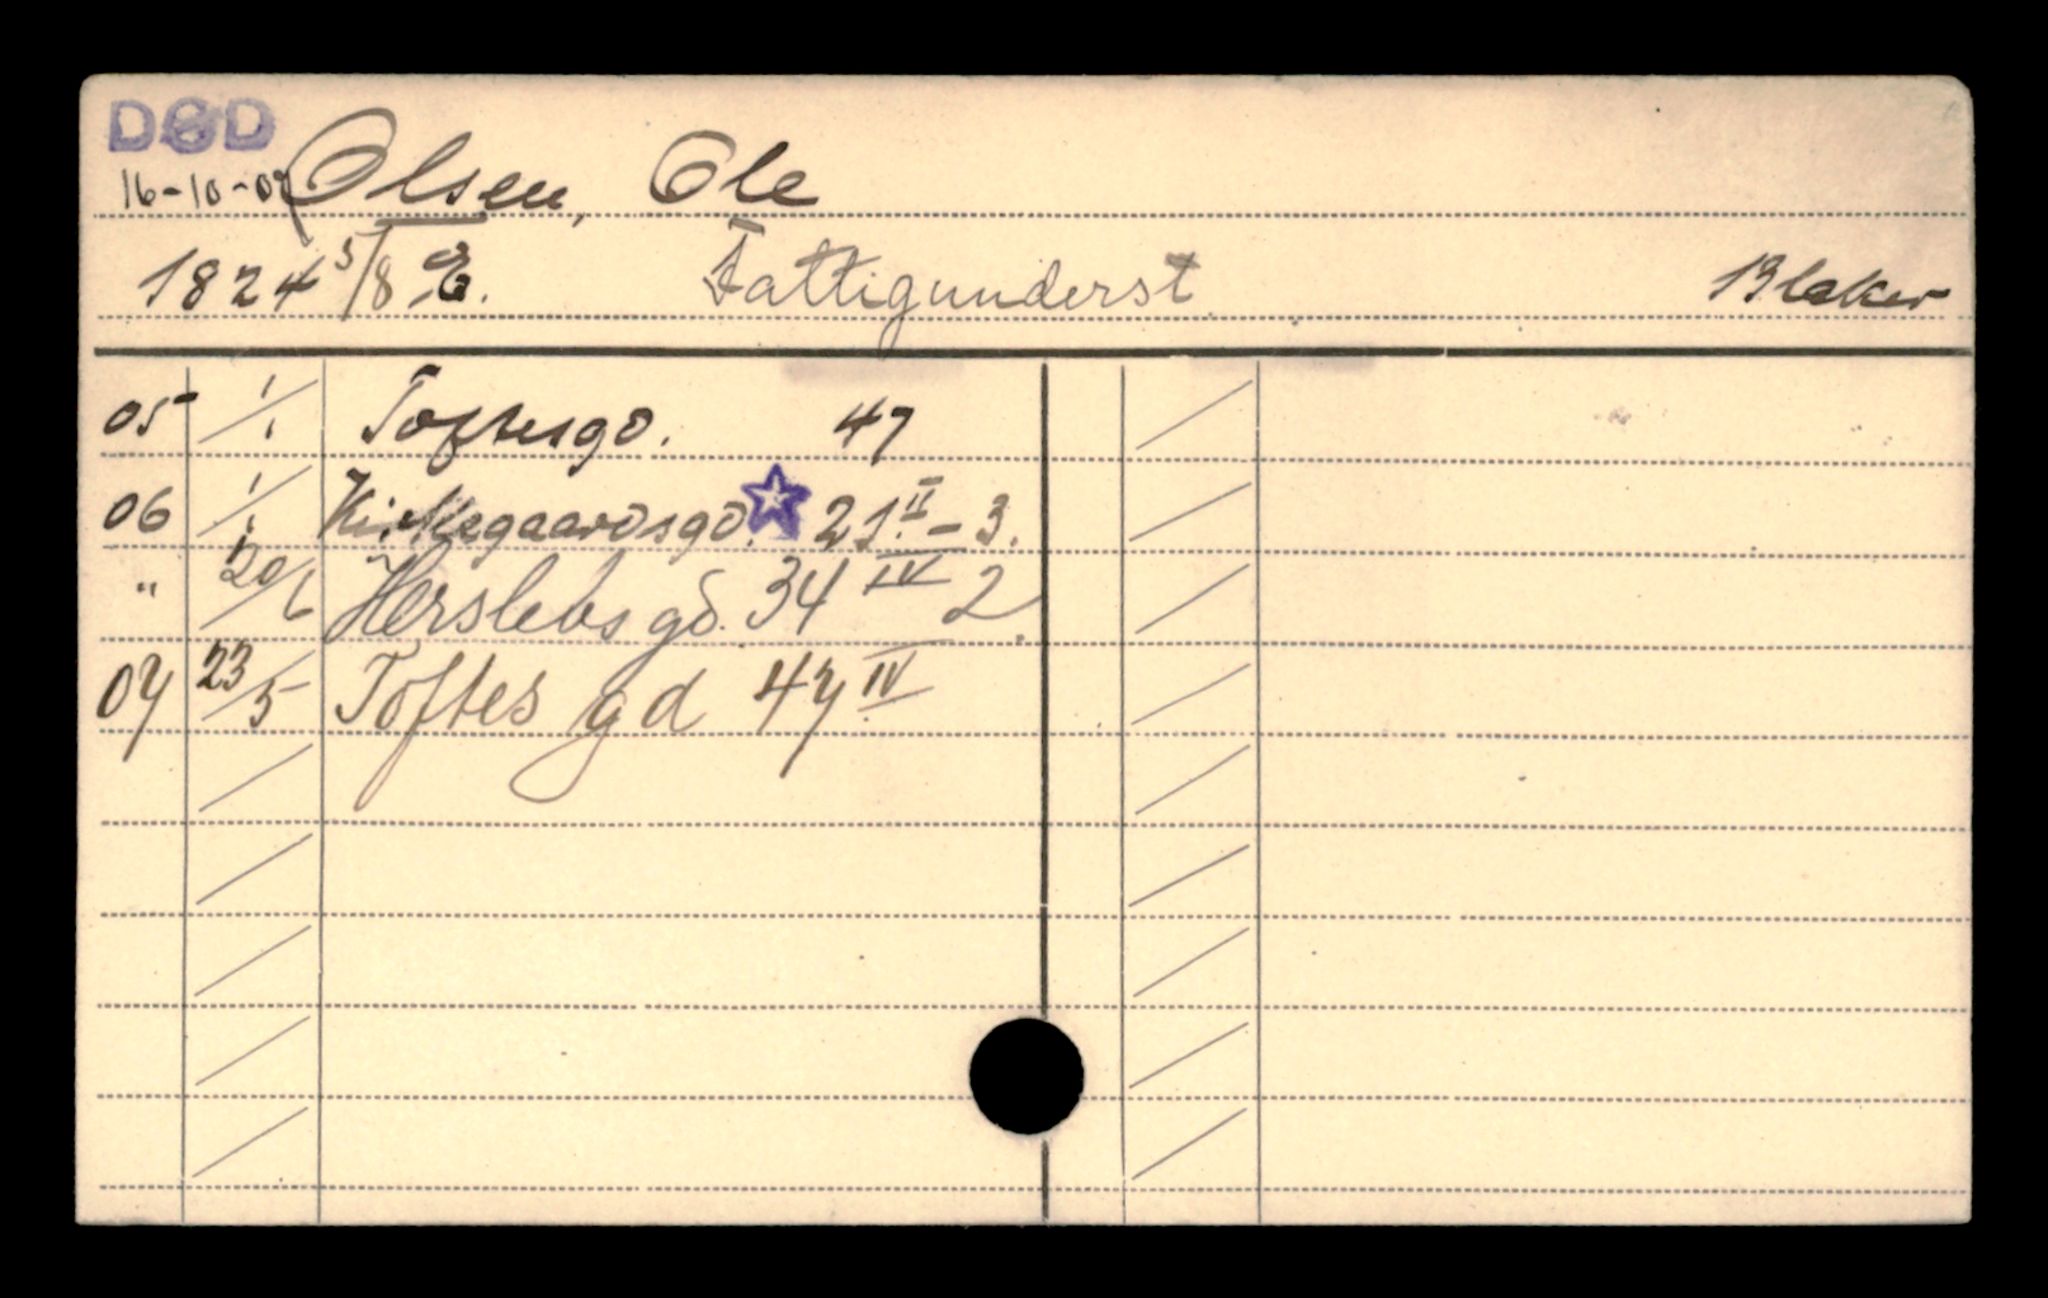 DØD
16-10-07 Olsen, Ole
1824 5/8 E. Fattigunderst Blaker
05 1/1 Toftesgd. 47
06 1/1 Kirkegaardsgd. 21 II - 3.
" 20/6 Herslebsgd. 34 IV 2.
07 23/5 Toftes gd 47 IV